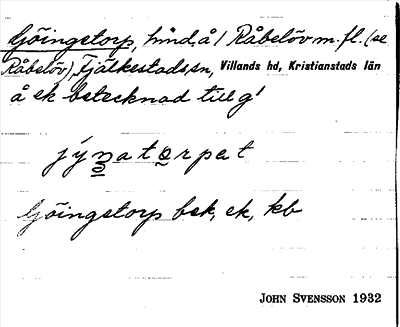 Göingstorp, hmd, å/ Råbelöv m. fl. (se
Råbelöv), Fjälkestads sn, Villands hd, Kristianstads län
å ek betecknad till g!
jýnatorpet
Göingstorp bek, ek, kb
JOHN SVENSSON 1932